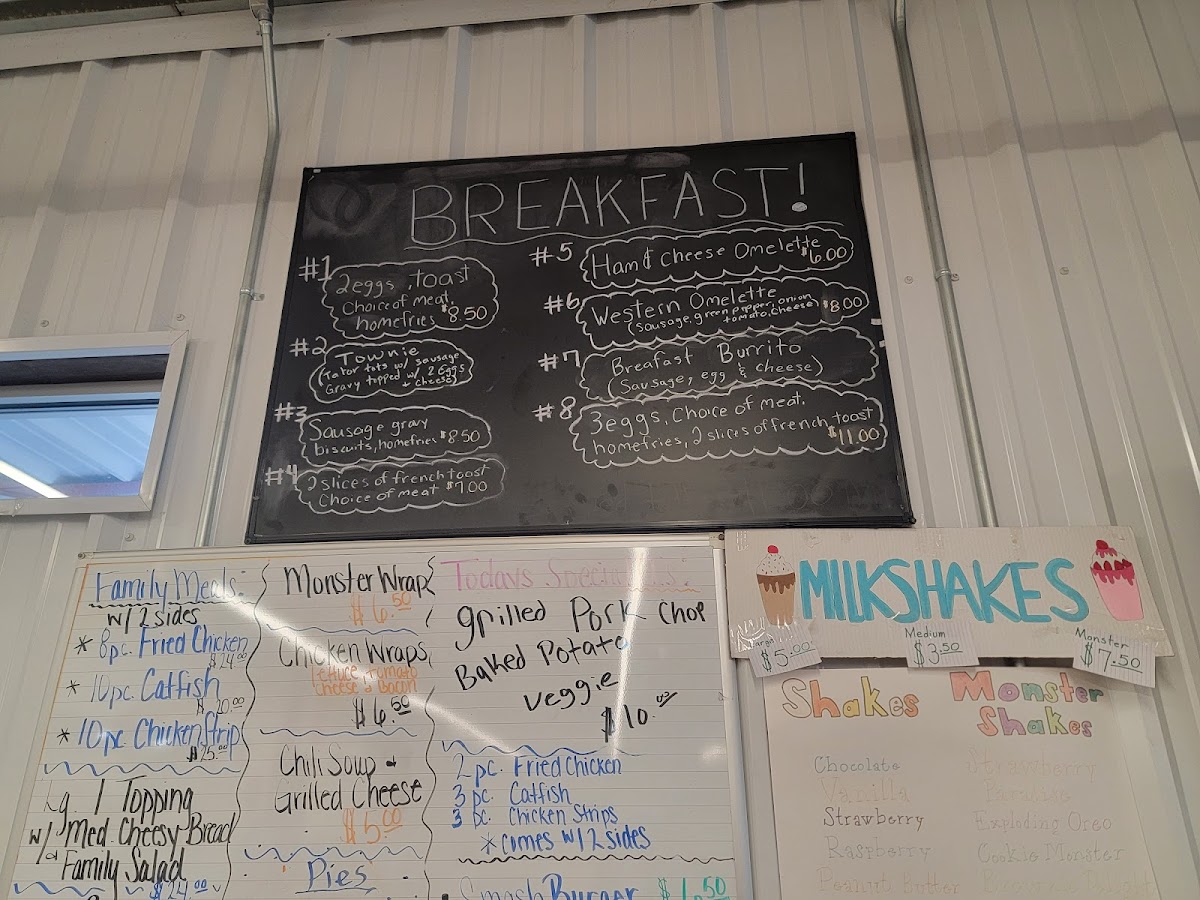 BREAKFAST!
#1
2eggs, toast
Choice of meat,
homefries $8.50
#2
Townie
(Tator tots w/ sausage
Gravy topped w/ 2 Eggs
+ cheese)
#3
Sausage gravy
biscuits, homefries $8.50
#4
2 slices of french toast
Choice of meat $7.00
#5
Ham & cheese Omelette
$6.00
#6
Western Omelette
(sausage, green pepper, onion
tomato, cheese) $8.00
#7
Breafast Burrito
(Sausage, egg & cheese)
#8
3eggs, Choice of meat.
homefries, 2 slices of french toast
$11.00
Family Meals:
w/ 2 sides
* 8pc. Fried Chicken
$24.00
* 10pc. Catfish
$20.00
* 10pc. Chicken Strip
$25.00
Lg. 1 Topping
w/ Med. Cheesy Bread
Family Salad
$24.00
Monster Wrap
$6.50
Chicken Wraps
lettuce tomato
cheese & bacon
$6.50
Chili Soup &
Grilled Cheese
$5.00
Pies
Todays Specials:
grilled Pork Chop
Baked Potato
veggie
$10.00
2 pc. Fried Chicken
3 pc. Catfish
3 pc. Chicken Strips
*comes w/ 2 sides
Smash Burger $6.50
MILKSHAKES
Large
$5.00
Medium
$3.50
Monster
$7.50
Shakes
Chocolate
Vanilla
Strawberry
Raspberry
Peanut Butter
Monster
Shakes
Strawberry
Paradise
Exploding Oreo
Cookie Monster